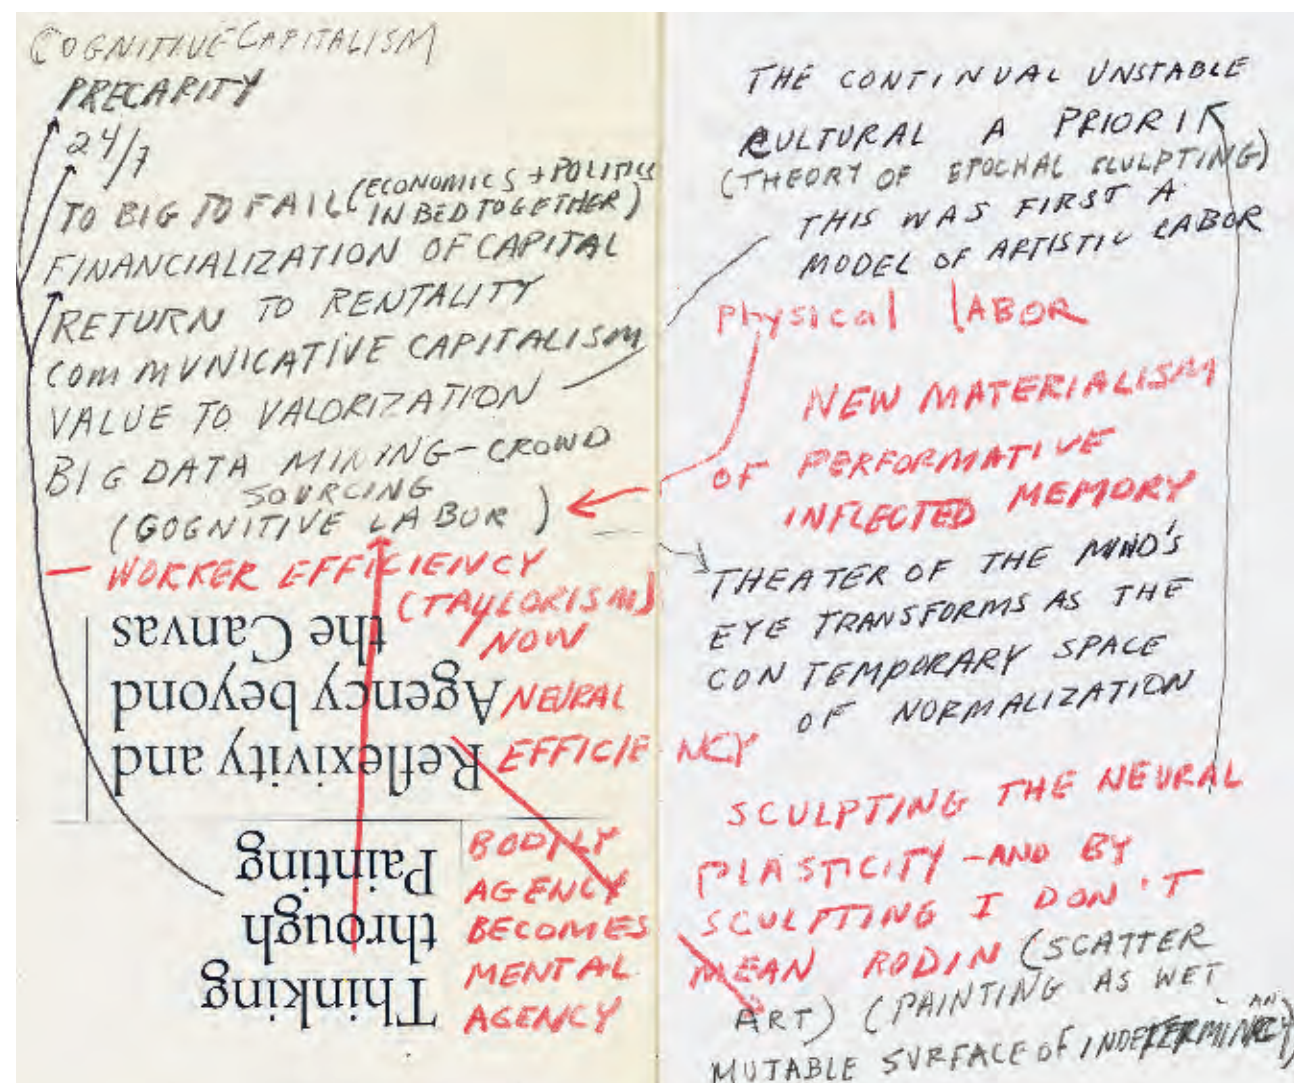 COGNITIVE CAPITALISM
PRECARITY
24/7
TO BIG TO FAIL (ECONOMICS + POLITICS
IN BED TOGETHER)
FINANCIALIZATION OF CAPITAL
RETURN TO RENTALITY
COMMUNICATIVE CAPITALISM
VALUE TO VALORIZATION
BIG DATA MINING-CROWD
SOURCING
(GOGNITIVE LABOR)
WORKER EFFICIENCY
(TAYLORISM)
NOW
NEURAL
EFFICIE NCY
BODILY
AGENCY
BECOMES
MENTAL
AGENCY
Thinking
through
Painting
Reflexivity and
Agency beyond
the Canvas
THE CONTINUAL UNSTABLE
CULTURAL A PRIORI
(THEORY OF EPOCHAL SCULPTING)
THIS WAS FIRST A
MODEL OF ARTISTIC LABOR
Physical LABOR
NEW MATERIALISM
OF PERFORMATIVE
INFLECTED MEMORY
THEATER OF THE MIND'S
EYE TRANSFORMS AS THE
CONTEMPORARY SPACE
OF NORMALIZATION
SCULPTING THE NEURAL
PLASTICITY - AND BY
SCULPTING I DON'T
MEAN RODIN (SCATTER
ART) (PAINTING AS WET
AN
MUTABLE SURFACE OF INDETERMINACY)